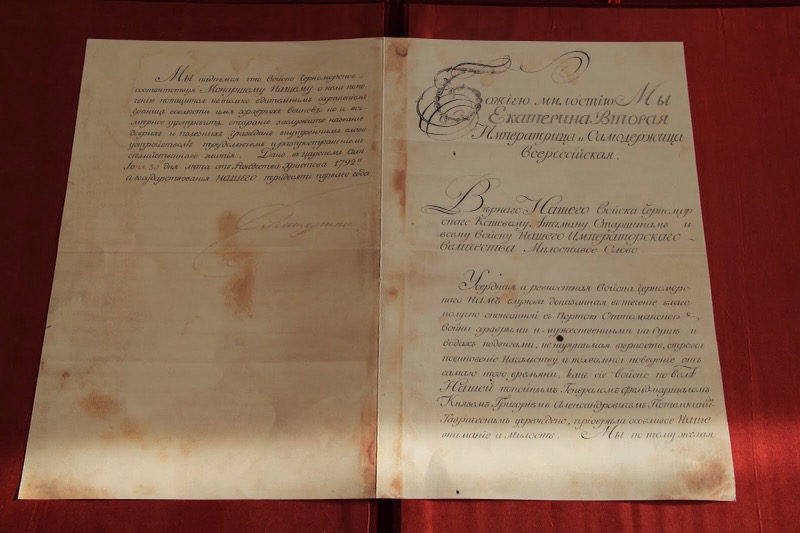 Мы надѣемся что Войско Черноморское
соотвѣтствуя Монаршему Нашему о немъ попе-
ченію потщится не только бдительнымъ охраненіемъ
границъ соблюсти имя храбрыхъ воиновъ но и все-
мѣрно употребитъ стараніе заслужить названіе
добрыхъ и полезныхъ гражданъ внутреннимъ благо-
устройствомъ трудолюбіемъ и распространеніемъ
семейственнаго житія. Дано въ Царскомъ Селѣ
Іюня 30 дня лѣта отъ Рождества Христова 1792го
а государствованія НАШЕГО тридесять перваго года
Екатерина
Божіею милостію Мы
Екатерина Вторая
Императрица и Самодержица
Всероссійская.
Вѣрнаго Нашего Войска Черномор-
скаго Кошевому Атаману, Старшинамъ и
всему Войску Нашего Императорскаго
Величества Милостивое Слово
Усердная и ревностная Войска Черномор-
скаго Намъ служба доказанная въ теченіе благо-
получно оконченной съ Портою Оттоманскою
войны храбрыми и мужественными на Сушѣ и
водахъ подвигами, ненарушимая вѣрность, строгое
повиновеніе Начальству и похвальное поведеніе отъ
самаго того времяни, какъ сіе Войско по волѣ
Нашей покойнымъ Генераломъ фельдмаршаломъ
Княземъ Григоріемъ Александровичемъ Потемкинъ-
Таврическимъ учреждено, пріобрѣли особливое Наше
вниманіе и Милость. Мы по тому желая